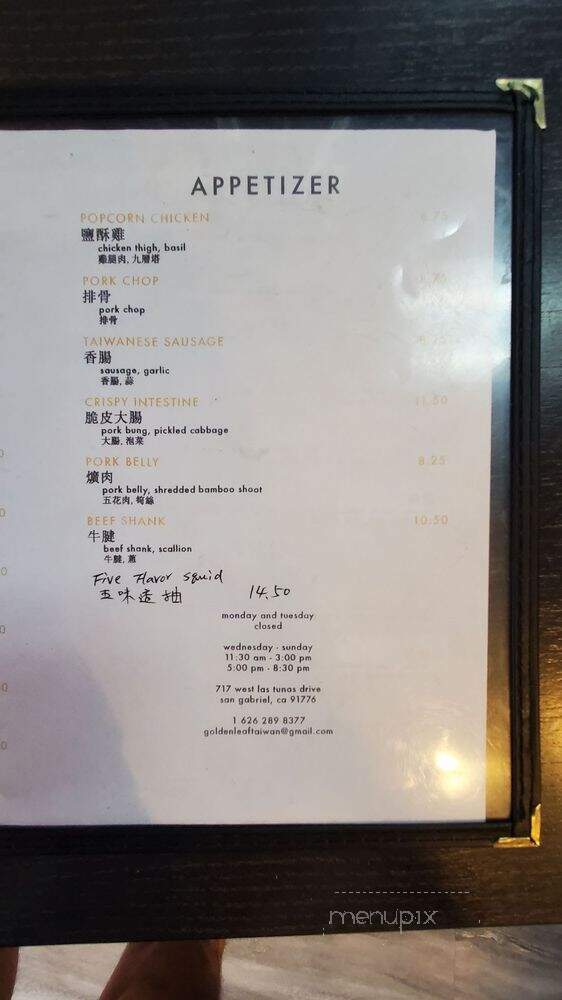 APPETIZER
POPCORN CHICKEN
鹽酥雞
chicken thigh, basil
雞腿肉, 九層塔
PORK CHOP
排骨
pork chop
排骨
TAIWANESE SAUSAGE
香腸
sausage, garlic
香腸, 蒜
CRISPY INTESTINE 11.50
脆皮大腸
pork bung, pickled cabbage
大腸, 泡菜
PORK BELLY 8.25
爌肉
pork belly, shredded bamboo shoot
五花肉, 筍絲
BEEF SHANK 10.50
牛腱
beef shank, scallion
牛腱, 蔥
Five Flavor Squid
五味透抽 14.50
monday and tuesday
closed
wednesday - sunday
11:30 am - 3:00 pm
5:00 pm - 8:30 pm
717 west las tunas drive
san gabriel, ca 91776
1 626 289 8377
goldenleaftaiwan@gmail.com
menupix